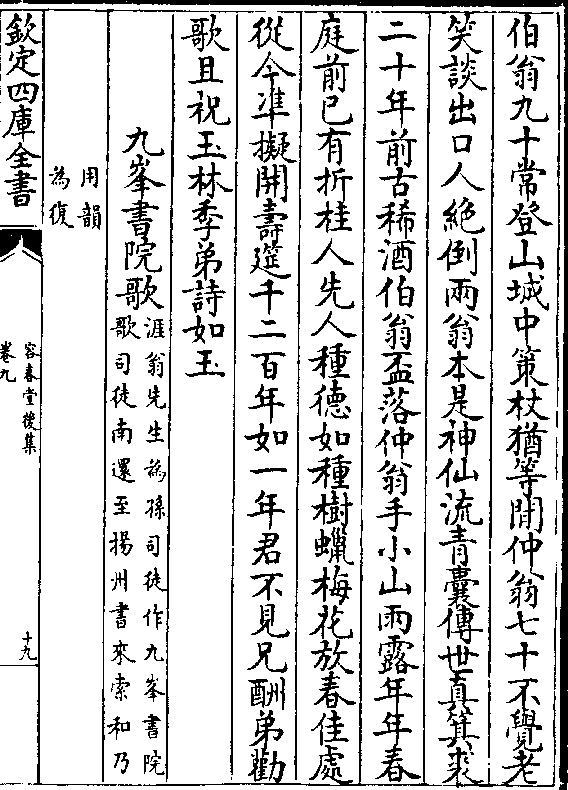 伯翁九十常登山城中䇿杖猶等閒仲翁七十不覺老
笑談出口人絶倒兩翁本是神仙流青囊傳世真箕裘
二十年前古稀酒伯翁盃落仲翁手小山雨露年年春
庭前已有折桂人先人種德如種樹蠟梅花放春佳處
從今準擬開壽筵千二百年如一年君不見兄酬弟勸
歌且祝玉林季弟詩如玉
九峯書院歌
涯翁先生為孫司徒作九峯書院
歌司徒南還至揚州書來索和乃
用韻
為復
欽定四庫全書
容春堂後集
卷九
十九